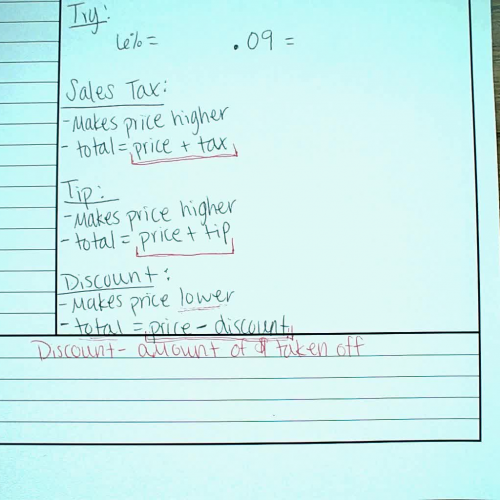 Try:
6% = .09 =
Sales Tax:
- Makes price higher
- total = price + tax
Tip:
- Makes price higher
- total = price + tip
Discount:
- Makes price lower
- total = price - discount
Discount - amount of $ taken off